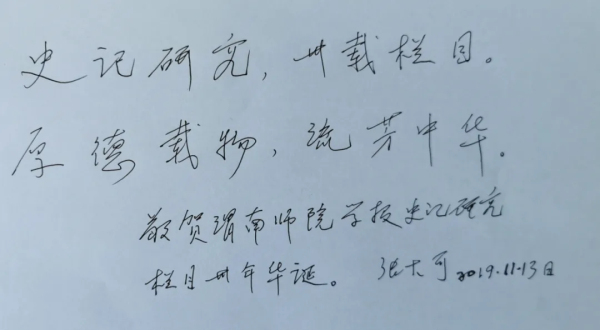 史记研究，卅载栏目。
厚德载物，流芳中华。
敬贺渭南师院学报史记研究
栏目卅年华诞。 张大可 2019.11.13日